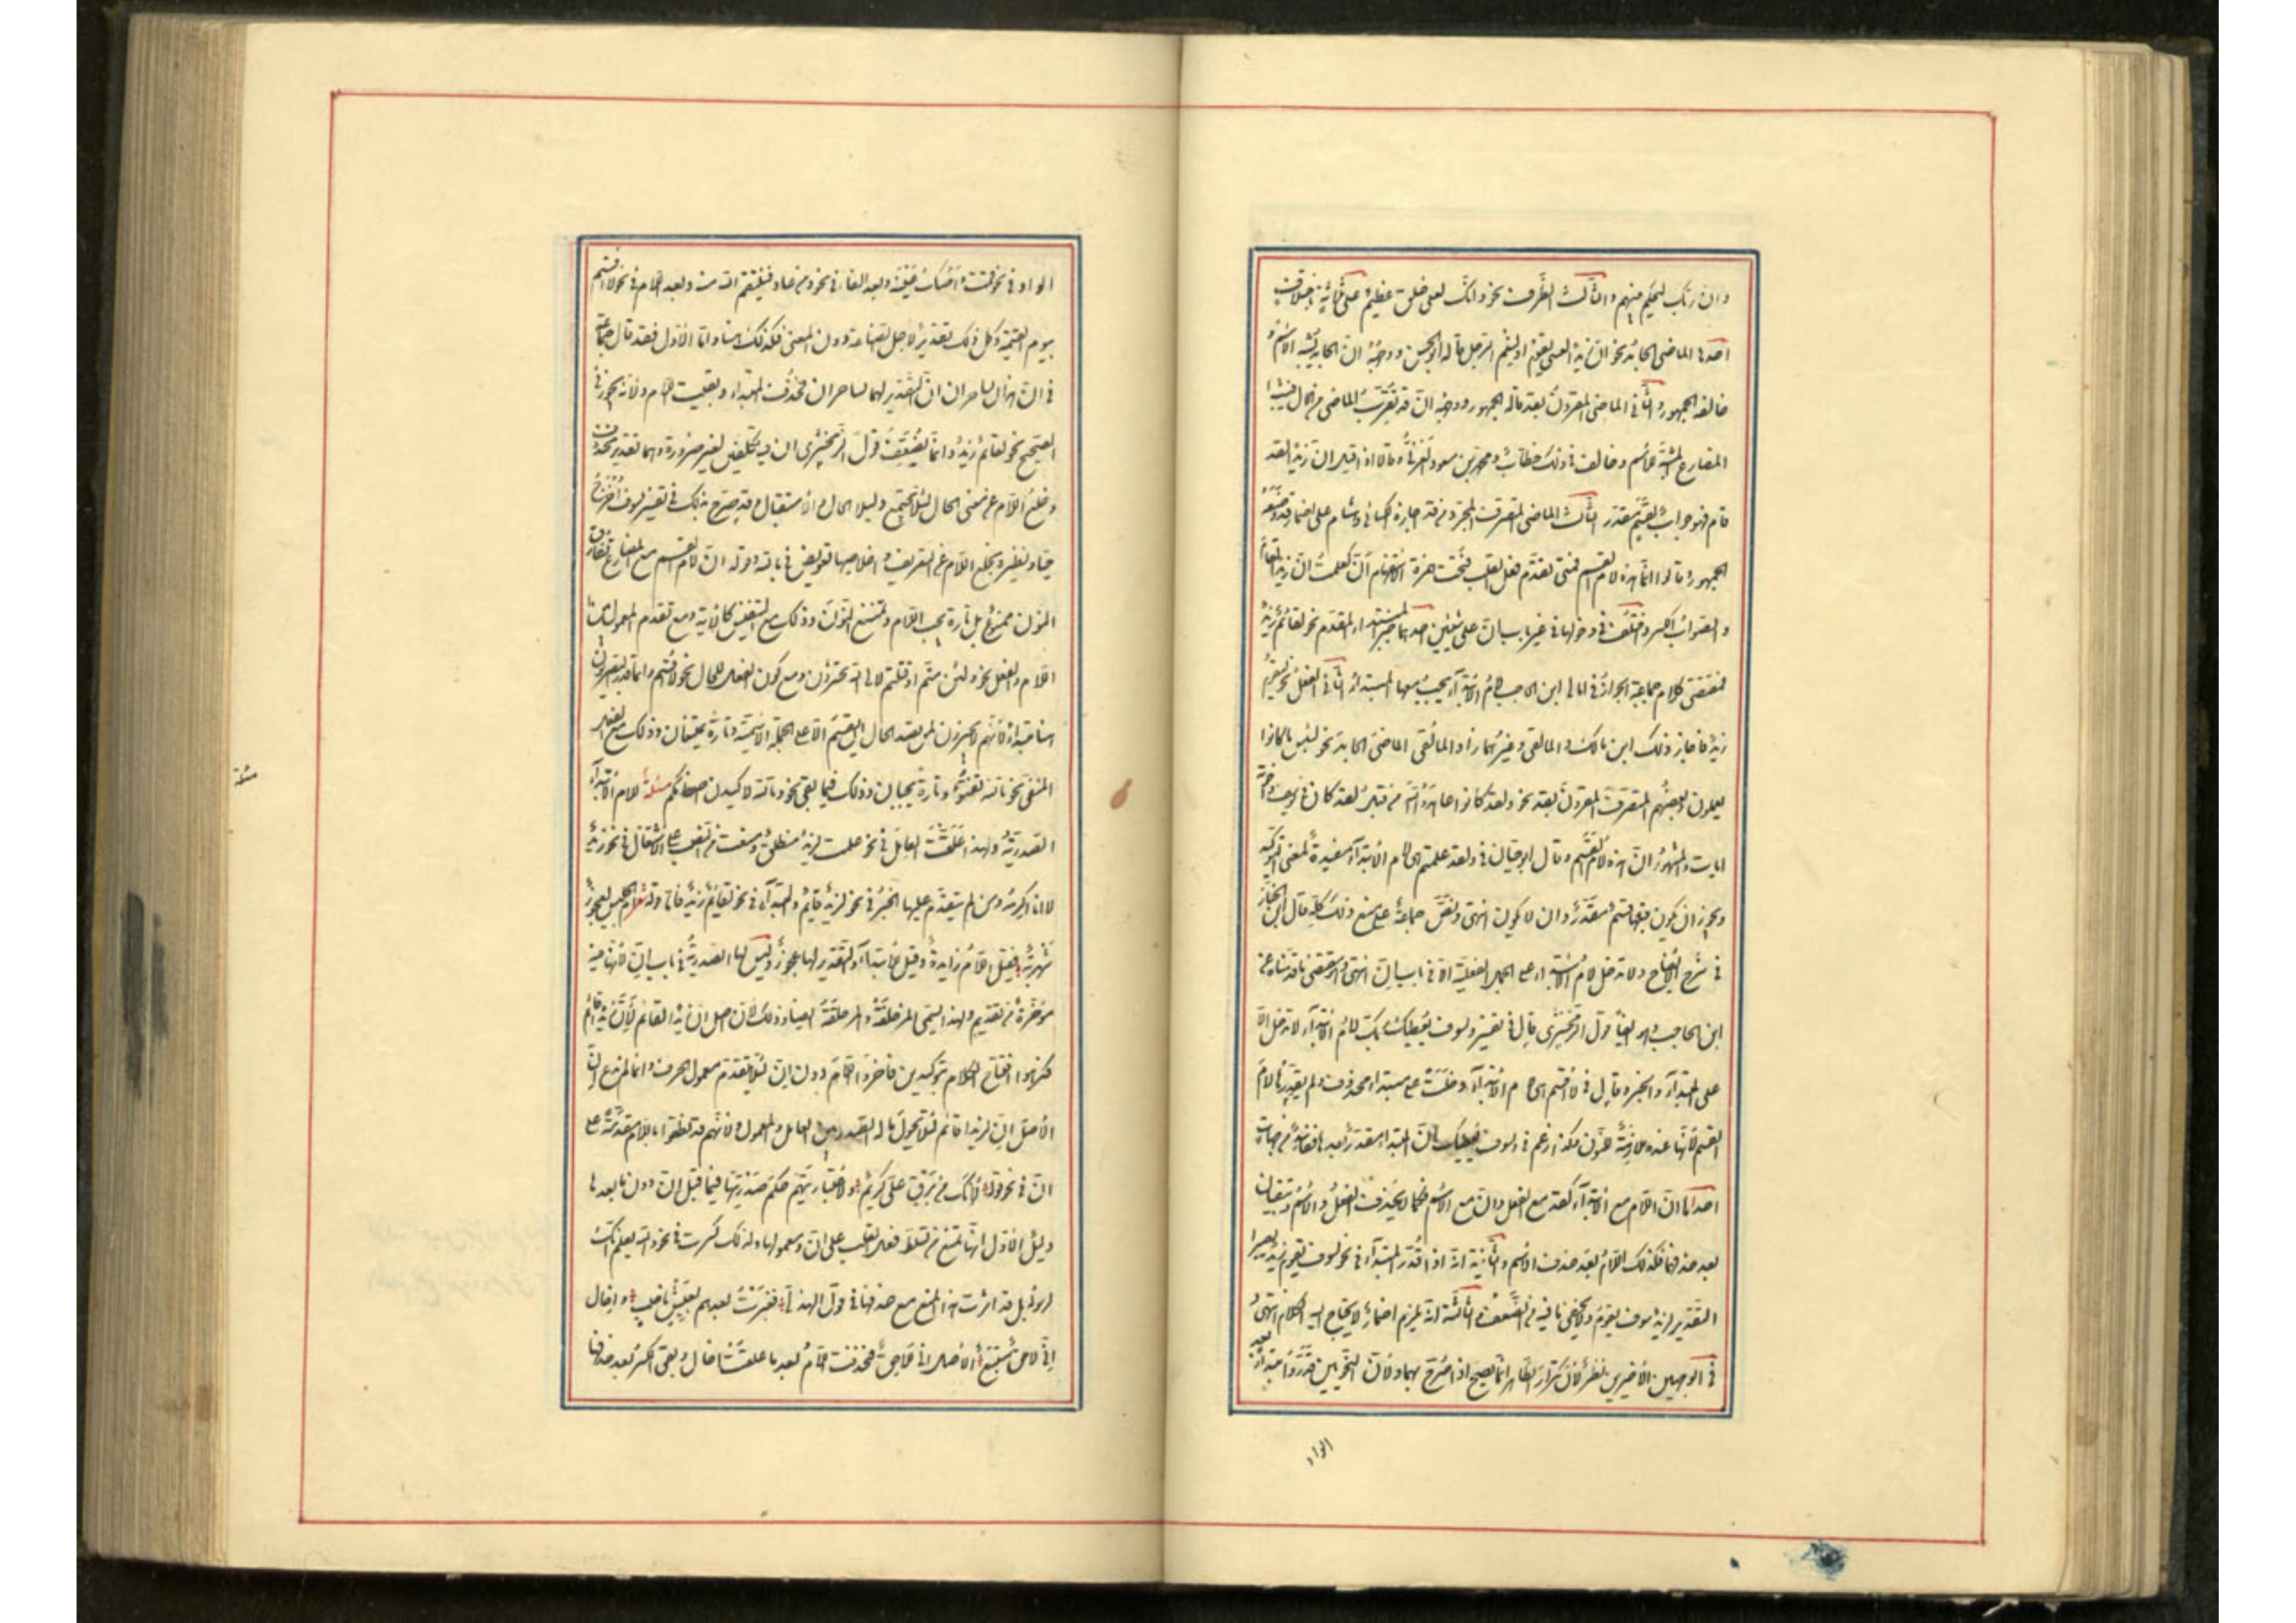 وان ربك ليحكم بينهم والثالث الظرف نحو وانك لعلى خلق عظيم وعلى ثلثة باختلاف
احدها الماضى الجامد نحو ان زيدا لعسى ان يقوم او لنعم الرجل قاله ابو الحسن ووجهه ان الجامد يشبه الاسم و
خالفه الجمهور والثانى الماضى المقرون بقد قاله الجمهور ووجهه ان قد تقرب الماضى من الحال فيشبه
المضارع المشبه للاسم وخالف فى ذلك خطاب ومحمد بن مسعود الغزنى وقالا اذا قيل ان زيدا لقد
قام فهو جواب لقسم مقدر الثالث الماضى المتصرف المجرد من قد اجازه الكسائى وهشام على اضمار قد ومنعه
الجمهور وقالوا انما هذه لام القسم فمتى تقدم فعل القلب فتحت همزة ان كعلمت ان زيدا لقام
والصواب الكسر واختلف فى دخولها فى غير باب ان على شيئين احدهما خبر المبتداء المقدم نحو لقائم زيد
فمقتضى كلام جماعة الجواز وفى امالى ابن الحاجب لام الابتداء يجب معها المبتدا الثانى الفعل نحو ليقوم
زيد فاجاز ذلك ابن مالك والمالقى وغيرهما زاد المالقى الماضى الجامد نحو لبئس ما كانوا
يعملون وبعضهم المتصرف المقرون بقد نحو ولقد كانوا عاهدوا الله من قبل لقد كان فى يوسف واخوته
ايات والمشهور ان هذه لام القسم وقال ابو حيان فى ولقد علمتم هى لام الابتداء مفيدة لمعنى التوكيد
ويجوز ان يكون قبلها قسم مقدر وان لا يكون انتهى ونص جماعة على منع ذلك كله قال ابن الخباز
فى شرح الايضاح ولا تدخل لام الابتداء على الجمل الفعلية الا فى باب ان انتهى وهو مقتضى ما قدمناه عن
ابن الحاجب وهو ايضا قول الزمخشرى قال فى تفسير ولسوف يعطيك ربك لام الابتداء لا تدخل الا
على المبتداء والخبر وقال فى لا اقسم هى لام الابتداء دخلت على مبتداء محذوف ولم يقدرها لام
القسم لانها عنده ملازمة للنون وكذا زعم فى ولسوف يعطيك ان المبتدا مقدر بعدها
احداها ان اللام مع الابتداء كقد مع الفعل وان مع الاسم فكما لا يحذف الفعل والاسم ويبقيان
بعد حذفهما فكذلك اللام بعد حذف الاسم والثانية انه اذا قدر المبتداء فى نحو لسوف يقوم زيد يصير
التقدير لزيد سوف يقوم ولا يخفى ما فيه من الضعف والثالثة انه يلزم اضمار لا يحتاج اليه الكلام انتهى و
فى الوجهين الاخيرين نظر لان تكرار الظاهر انما يقبح اذا صرح بهما ولان النحويين قدروا مبتدا بعد
الواو
الواو فى نحو قمت واصك عينه وبعد الفاء فى نحو ومن عاد فينتقم الله منه وبعد اللام فى نحو لا اقسم
بيوم القيمة وكل ذلك تقدير لاجل الصناعة دون المعنى فكذلك هنا واما الاول فقد قال جماعة
فى ان هذان لساحران ان التقدير لهما ساحران فحذف المبتداء وبقيت اللام ولانه يجوز فى
الصحيح نحو لقائم زيد وانما يضعف قول الزمخشرى ان فيه تكلفين لغير ضرورة وهما تقدير محذوف
وخلع اللام عن معنى الحال لئلا يجتمع دليلا الحال والاستقبال وقد صرح بذلك فى تفسير لسوف اخرج
حيا ونظيره بخلع اللام عن التعريف واخلاصها للتعويض فى يا الله وقوله ان لام القسم مع المضارع لا تفارق
النون ممنوع بل تارة يجب اللام وتمتنع النون وذلك مع التنفيس كالاية ومع تقدم المعمول بين
اللام والفعل نحو ولئن متم او قتلتم لالى الله تحشرون ومع كون الفعل للحال نحو لاقسم وانما قدر البصريون
هنا مبتدا لانهم لا يجيزون لمن يقصد الحال ان يقسم الا على الجملة الاسمية وتارة يمتنعان وذلك مع الفعل
المنفى نحو تالله تفتؤ وتارة يجبان وذلك فيما بقى نحو وتالله لاكيدن اصنامكم مسئلة للام الابتداء
الصدرية ولهذا علقت العامل فى نحو علمت لزيد منطلق ومنعت من النصب على الاشتغال فى نحو زيد
لانا اكرمه ومن ان يتقدم عليها الخبر فى نحو لزيد قائم والمبتداء فى نحو لقائم زيد فاما قوله شعر ام الحليس لعجوز
شهربة فقيل اللام زايدة وقيل للابتداء والتقدير لهى عجوز وليس لها الصدرية فى باب ان لانها فيه
مؤخرة من تقديم ولهذا تسمى المزحلقة والمزحلفة ايضا وذلك لان اصل ان زيدا لقائم لان زيدا قائم
فكرهوا افتتاح الكلام بتوكيدين فاخروا اللام دون ان لئلا يتقدم معمول الحرف وانما لم ندع ان
الاصل ان لزيدا قائم لئلا يحول ما له الصدر بين العامل والمعمول ولانهم قد نطقوا باللام مقدمة على
ان فى نحو قوله لهنك من برق على كريم ولاعتبارهم حكم صدريتها فيما قبل ان دون ما بعدها
دليل الاول انها تمنع من تسلط فعل القلب على ان ومعموليها ولذلك كسرت فى نحو والله يعلم انك
لرسوله بل قد اثرت هذا المنع مع حذفها فى قول الهذلى فغبرت بعدهم بعيش ناصب واخال
انى لاحق مستتبع الاصل انى للاحق فحذفت اللام بعد ما علقت اخال وبقى الكسر بعد حذفها
مسئلة